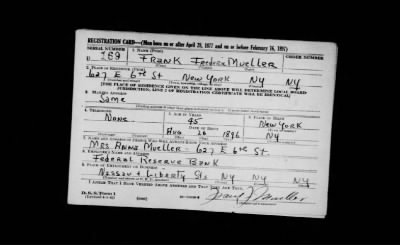 REGISTRATION CARD—(Men born on or after April 28, 1877 and on or before February 16, 1897)
SERIAL NUMBER 1. NAME (Print) ORDER NUMBER
U 289 FRANK Frederick Mueller
(First) (Middle) (Last)
2. PLACE OF RESIDENCE (Print)
627 E 6th St New York NY NY
[THE PLACE OF RESIDENCE GIVEN ON THE LINE ABOVE WILL DETERMINE LOCAL BOARD
JURISDICTION; LINE 2 OF REGISTRATION CERTIFICATE WILL BE IDENTICAL]
3. MAILING ADDRESS
Same
4. TELEPHONE 5. AGE IN YEARS 6. PLACE OF BIRTH
None 45 New York
DATE OF BIRTH
Aug 26 1896 NY
7. NAME AND ADDRESS OF PERSON WHO WILL ALWAYS KNOW YOUR ADDRESS
Mrs Anna Mueller - 627 E 6th St.
8. EMPLOYER'S NAME AND ADDRESS
Federal Reserve Bank
9. PLACE OF EMPLOYMENT OR BUSINESS
Nassau & Liberty Sts NY NY NY
I AFFIRM THAT I HAVE VERIFIED ABOVE ANSWERS AND THAT THEY ARE TRUE.
D. S. S. Form 1
Frank F Mueller